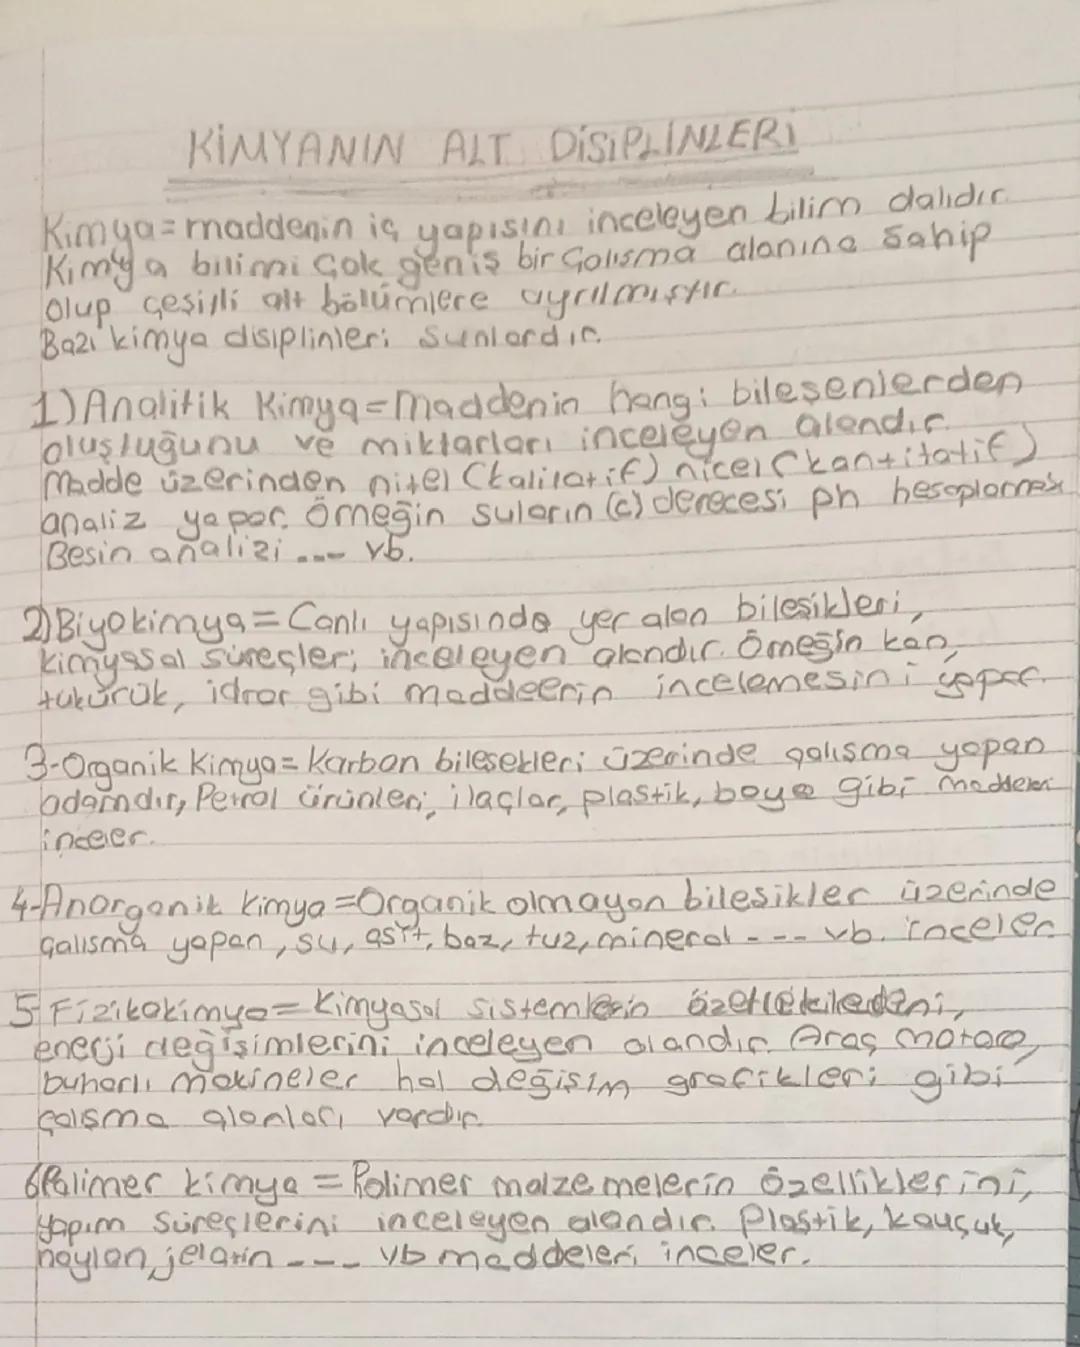 KİMYANIN ALT DİSİPLİNLERİ
Kimya=maddenin iç yapısını inceleyen bilim dalıdır.
Kimya bilimi çok geniş bir çalısma alanına sahip
olup çeşitli alt bölümlere ayrılmıştır.
Bazı kimya disiplinleri sunlardır.
1) Analitik Kimya=Maddenin hangi bileşenlerden
oluştuğunu ve miktarları inceleyen alandır.
Madde üzerinden nitel (kalitatif) nicel (kantitatif)
analiz yapar. Örneğin suların (c) derecesi ph hesaplaması
Besin analizi ---- vb.
2) Biyokimya= Canlı yapısında yer alan bileşikleri,
kimyssal süreçleri inceleyen alandır. Örneğin kan,
tukürük, idrar gibi maddeerin incelemesini yapar.
3-Organik Kimya= Karbon bilesekleri üzerinde çalısma yapan
adamdır, Petrol ürünleri, ilaçlar, plastik, boya gibi maddeleri
inceler.
4-Anorganik kimya=Organik olmayan bileşikler üzerinde
çalısma yapan, su, asit, baz, tuz, mineral --- vb. inceler
5-Fizikokimya= Kimyasal sistemlerin
enerji değişimlerini inceleyen alandır. Araç motoro,
buharlı makineler hal değişim grafikleri gibi
çalışma alanları vardır.
6)Polimer kimya = Polimer malzemelerin özelliklerini,
yapım süreçlerini inceleyen alandır. Plastik, kauçuk,
naylon, jelatin ---- vb maddeleri inceler.